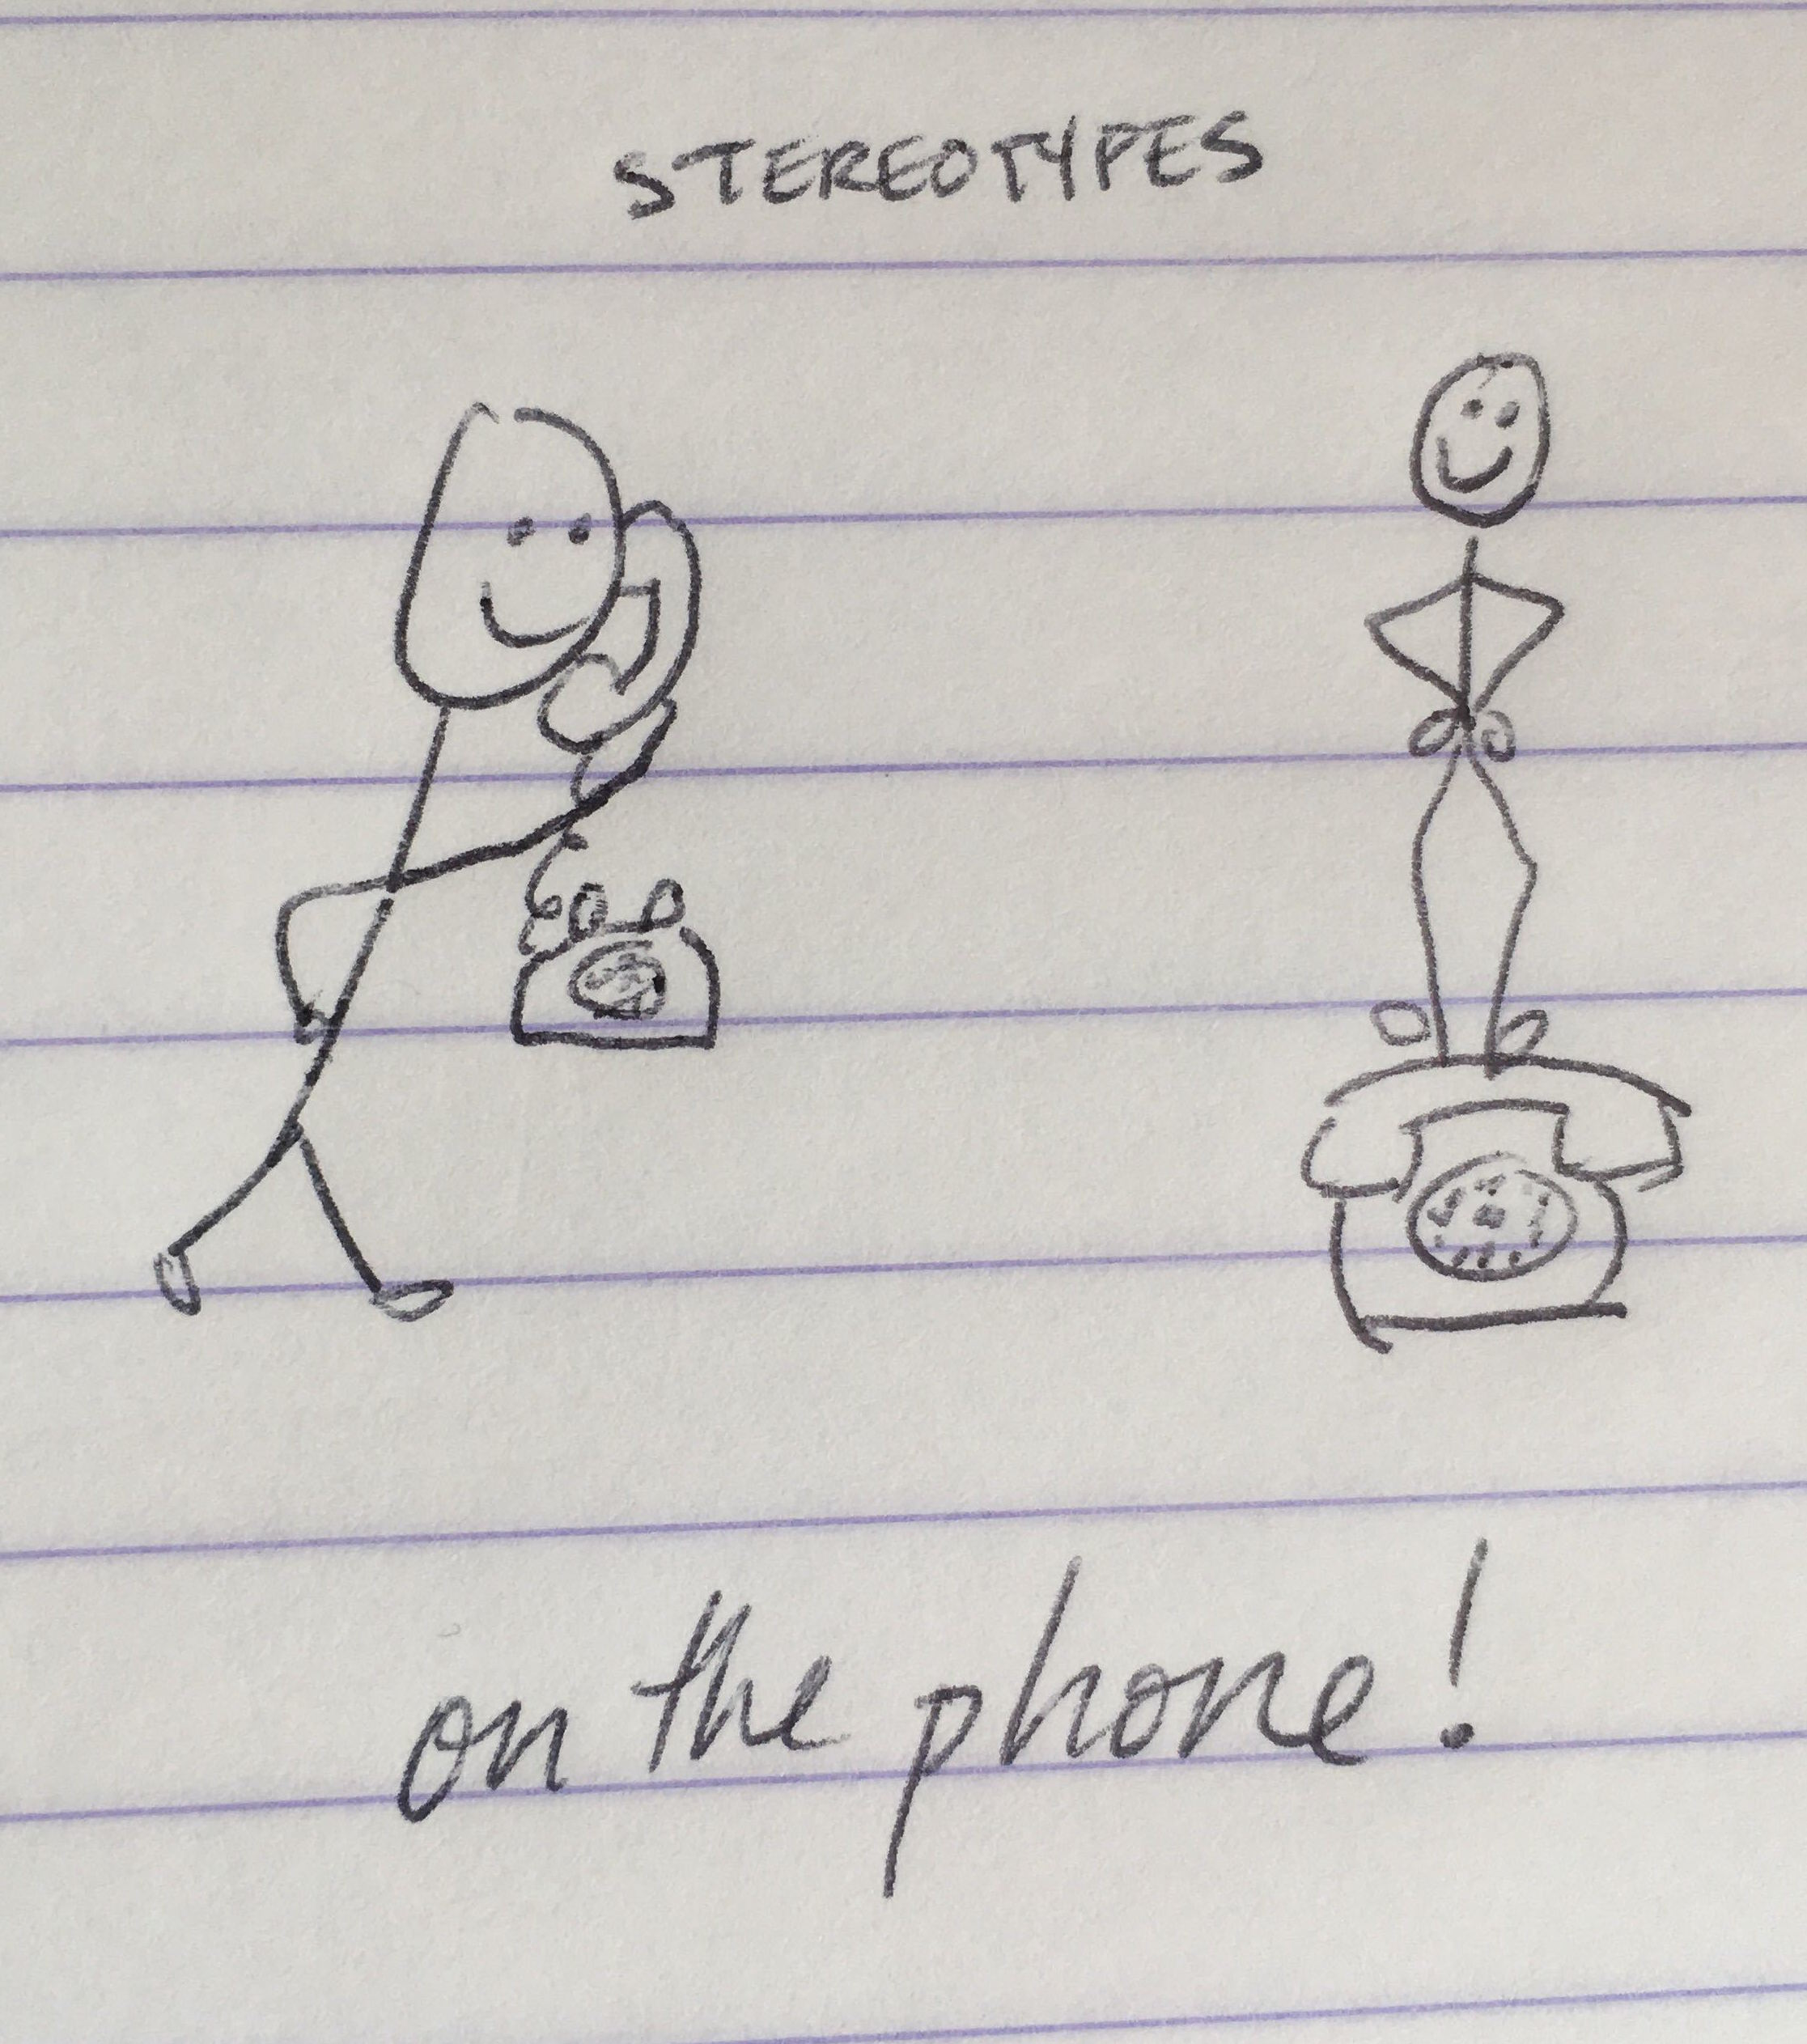 STEREOTYPES
on the phone!